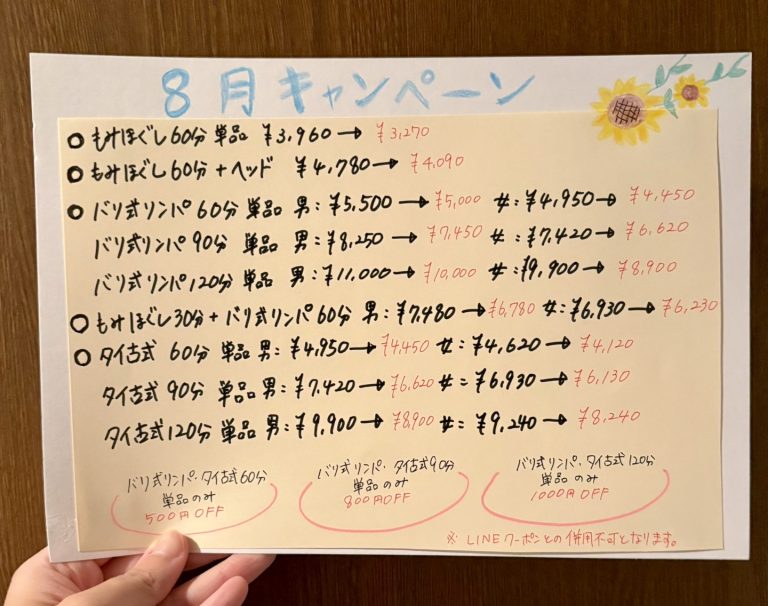 8月キャンペーン
○ もみほぐし60分 単品 ¥3,960→ ¥3,270
○ もみほぐし60分+ヘッド ¥4,780→ ¥4,090
○ バリ式リンパ 60分 単品 男:¥5,500→ ¥5,000 女:¥4,950→ ¥4,450
バリ式リンパ 90分 単品 男:¥8,250→ ¥7,450 女:¥7,420→ ¥6,620
バリ式リンパ120分 単品 男:¥11,000→ ¥10,000 女:¥9,900→ ¥8,900
○ もみほぐし30分+バリ式リンパ60分 男:¥7,480→ ¥6,780 女:¥6,930→ ¥6,230
○ タイ古式 60分 単品 男:¥4,950→ ¥4,450 女:¥4,620→ ¥4,120
タイ古式 90分 単品 男:¥7,420→ ¥6,620 女:¥6,930→ ¥6,130
タイ古式120分 単品 男:¥9,900→ ¥8,900 女:¥9,240→ ¥8,240
バリ式リンパ・タイ古式60分
単品のみ
500円OFF
バリ式リンパ・タイ古式90分
単品のみ
800円OFF
バリ式リンパ・タイ古式120分
単品のみ
1000円OFF
※ LINEクーポンとの併用不可となります。